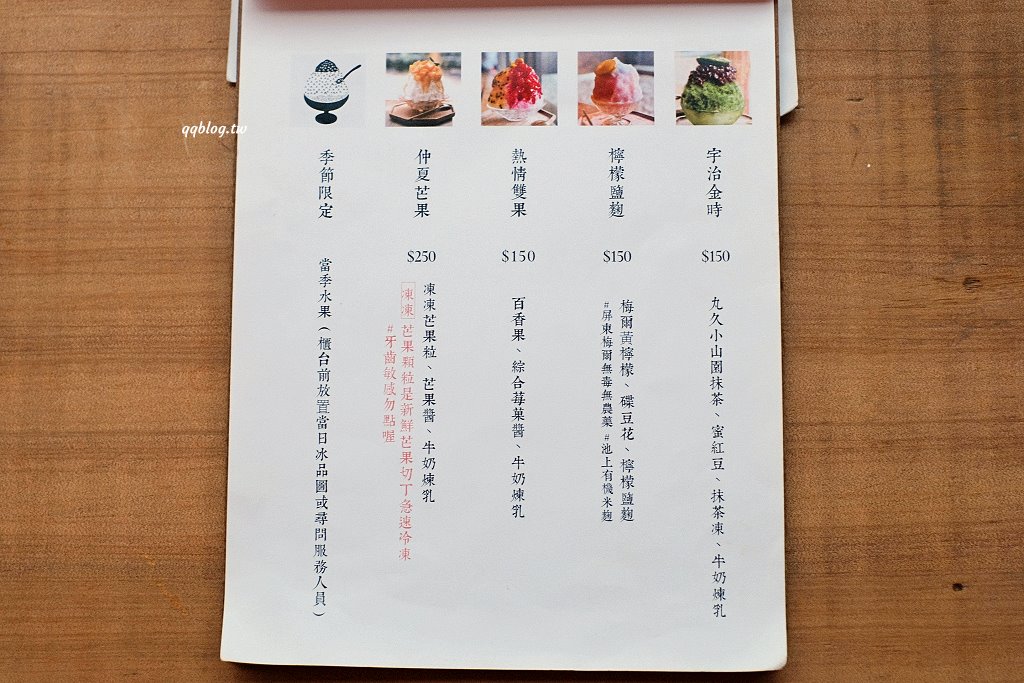 qqblog.tw
宇治金時
$150
丸久小山園抹茶、蜜紅豆、抹茶凍、牛奶煉乳
檸檬鹽麴
$150
梅爾黃檸檬、碟豆花、檸檬鹽麴
#屏東梅爾無毒無農藥 #池上有機米麴
熱情雙果
$150
百香果、綜合莓菓醬、牛奶煉乳
仲夏芒果
$250
凍凍芒果粒、芒果醬、牛奶煉乳
凍凍 芒果顆粒是新鮮芒果切丁急速冷凍
#牙齒敏感勿點喔
季節限定
當季水果(櫃台前放置當日冰品圖或尋問服務人員)